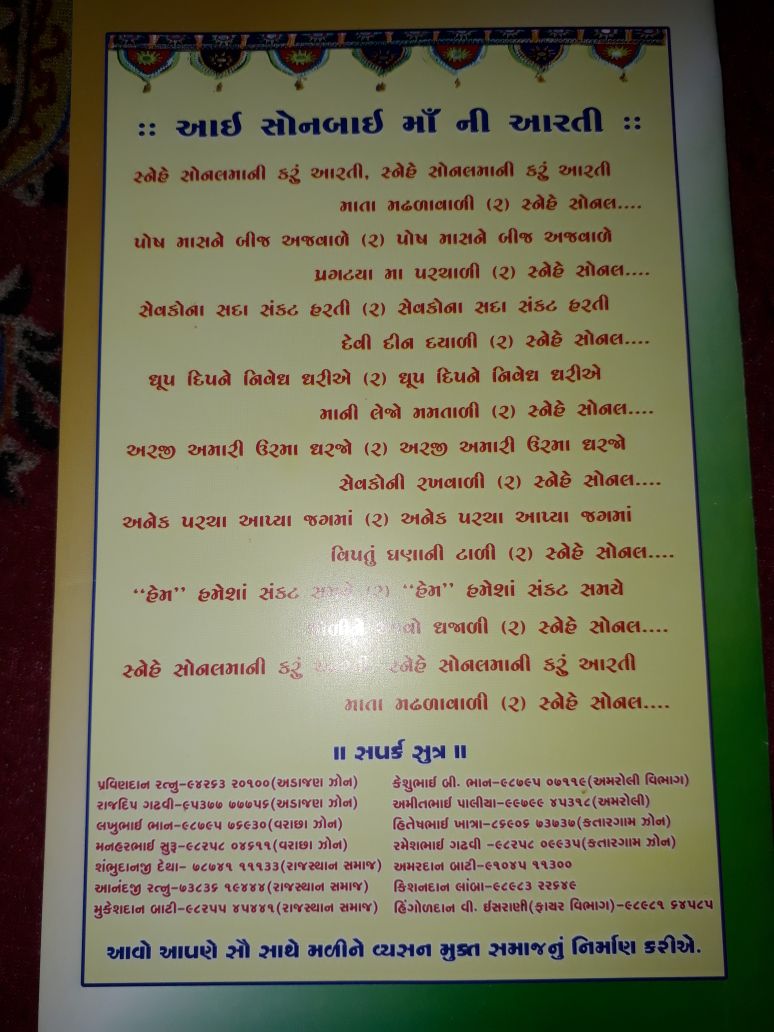 :: આઈ સોનબાઈ માઁ ની આરતી ::
સ્નેહે સોનલમાની કરું આરતી, સ્નેહે સોનલમાની કરું આરતી
માતા મઢળાવાળી (૨) સ્નેહે સોનલ....
પોષ માસને બીજ અજવાળે (૨) પોષ માસને બીજ અજવાળે
પ્રગટયા મા પરચાળી (૨) સ્નેહે સોનલ....
સેવકોના સદા સંકટ હરતી (૨) સેવકોના સદા સંકટ હરતી
દેવી દીન દયાળી (૨) સ્નેહે સોનલ....
ધૂપ દિપને નિવેધ ધરીએ (૨) ધૂપ દિપને નિવેધ ધરીએ
માની લેજો મમતાળી (૨) સ્નેહે સોનલ....
અરજી અમારી ઉરમા ધરજો (૨) અરજી અમારી ઉરમા ધરજો
સેવકોની રખવાળી (૨) સ્નેહે સોનલ....
અનેક પરચા આપ્યા જગમાં (૨) અનેક પરચા આપ્યા જગમાં
વિપતું ઘણાની ટાળી (૨) સ્નેહે સોનલ....
“હેમ” હમેશાં સંકટ સમયે (૨) “હેમ” હમેશાં સંકટ સમયે
ધજાળી (૨) સ્નેહે સોનલ....
સ્નેહે સોનલમાની કરું આરતી, સ્નેહે સોનલમાની કરું આરતી
માતા મઢળાવાળી (૨) સ્નેહે સોનલ....
॥ સપર્ક સુત્ર ॥
પ્રવિણદાન રત્નુ-૯૪૨૬૩ ૨૦૧૦૦(અડાજણ ઝોન)
રાજદિપ ગઢવી-૯૫૩૭૭ ૭૭૭૫૬(અડાજણ ઝોન)
લખુભાઈ ભાન-૯૮૭૯૫ ૭૬૯૩૦(વરાછા ઝોન)
મનહરભાઈ સુરૂ-૯૮૨૫૮ ૦૪૬૧૧(વરાછા ઝોન)
શંભુદાનજી દેથા- ૭૮૭૪૧ ૧૧૧૩૩(રાજસ્થાન સમાજ)
આનંદજી રત્નુ-૭૩૮૩૬ ૧૯૪૪૪(રાજસ્થાન સમાજ)
મુકેશદાન બાટી-૯૮૨૫૫ ૪૫૪૪૧(રાજસ્થાન સમાજ)
કેશુભાઈ બી. ભાન-૯૮૭૯૫ ૦૭૧૧૯(અમરોલી વિભાગ)
અમીતભાઈ પાલીયા-૯૯૭૯૯ ૪૫૩૧૮(અમરોલી)
હિતેષભાઈ ખાત્રા-૮૬૯૦૬ ૭૩૭૩૭(કતારગામ ઝોન)
રમેશભાઈ ગઢવી -૯૮૨૫૮ ૦૯૯૩૫(કતારગામ ઝોન)
અમરદાન બાટી-૯૧૦૪૫ ૧૧૩૦૦
કિશનદાન લાંબા-૯૮૯૮૩ ૨૨૬૪૯
હિંગોળદાન વી. ઈસરાણી(ફાયર વિભાગ)-૯૮૯૮૧ ૬૪૫૮૫
આવો આપણે સૌ સાથે મળીને વ્યસન મુક્ત સમાજનું નિર્માણ કરીએ.